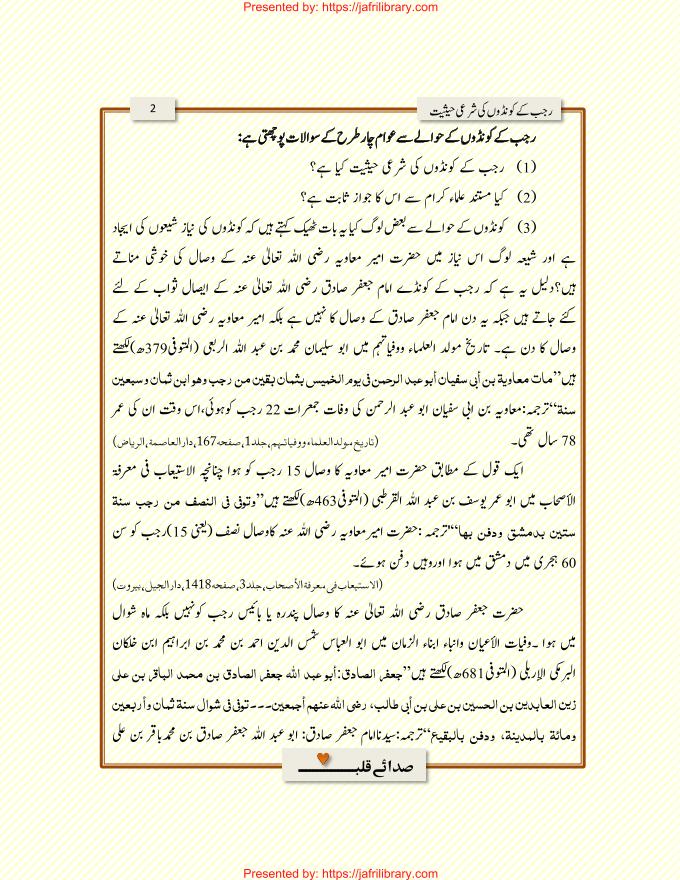 Presented by: https://jafrilibrary.com
رجب کے کونڈوں کی شرعی حیثیت
2
رجب کے کونڈوں کے حوالے سے عوام چار طرح کے سوالات پوچھتی ہے:
(1) رجب کے کونڈوں کی شرعی حیثیت کیا ہے؟
(2) کیا مستند علماء کرام سے اس کا جواز ثابت ہے؟
(3) کونڈوں کے حوالے سے بعض لوگ کیا یہ بات ٹھیک کہتے ہیں کہ کونڈوں کی نیاز شیعوں کی ایجاد
ہے اور شیعہ لوگ اس نیاز میں حضرت امیر معاویہ رضی اللہ تعالیٰ عنہ کے وصال کی خوشی مناتے
ہیں؟دلیل یہ ہے کہ رجب کے کونڈے امام جعفر صادق رضی اللہ تعالیٰ عنہ کے ایصال ثواب کے لئے
کئے جاتے ہیں جبکہ یہ دن امام جعفر صادق کے وصال کا نہیں ہے بلکہ امیر معاویہ رضی اللہ تعالیٰ عنہ کے
وصال کا دن ہے۔ تاریخ مولد العلماء ووفیاتہم میں ابو سلیمان محمد بن عبد اللہ الربعی (المتوفی379ھ)لکھتے
ہیں’’مات معاوية بن أبي سفيان أبو عبد الرحمن في يوم الخميس بثمان بقين من رجب وهو ابن ثمان وسبعين
سنة‘‘ترجمہ:معاویہ بن ابی سفیان ابو عبد الرحمن کی وفات جمعرات 22 رجب کوہوئی،اس وقت ان کی عمر
78 سال تھی۔ (تاریخ مولد العلماء ووفیاتہم،جلد1،صفحہ167،دار العاصمۃ،الریاض)
ایک قول کے مطابق حضرت امیر معاویہ کا وصال 15 رجب کو ہوا چنانچہ الاستیعاب فی معرفۃ
الأصحاب میں ابو عمر یوسف بن عبد اللہ القرطبی (المتوفی463ھ)لکھتے ہیں’’وتوفي في النصف من رجب سنة
ستين بدمشق ودفن بها‘‘ترجمہ :حضرت امیر معاویہ رضی اللہ عنہ کاوصال نصف (یعنی 15)رجب کو سن
60 ہجری میں دمشق میں ہوا اوروہیں دفن ہوئے۔
(الاستیعاب فی معرفۃ الأصحاب،جلد3،صفحہ1418،دار الجیل،بیروت)
حضرت جعفر صادق رضی اللہ تعالیٰ عنہ کا وصال پندرہ یا بائیس رجب کونہیں بلکہ ماہ شوال
میں ہوا ۔وفیات الأعیان وانباء ابناء الزمان میں ابو العباس شمس الدین احمد بن محمد بن ابراہیم ابن خلکان
البرمکی الإربلی (المتوفی681ھ)لکھتے ہیں’’جعفر الصادق:أبو عبد الله جعفر الصادق بن محمد الباقر بن علي
زين العابدين بن الحسين بن علي بن أبي طالب، رضي الله عنهم أجمعين۔۔۔توفي في شوال سنة ثمان وأربعين
ومائة بالمدينة، ودفن بالبقيع‘‘ترجمہ:سیدناامام جعفر صادق: ابو عبد اللہ جعفر صادق بن محمد باقر بن علی
صدائے قلب
Presented by: https://jafrilibrary.com